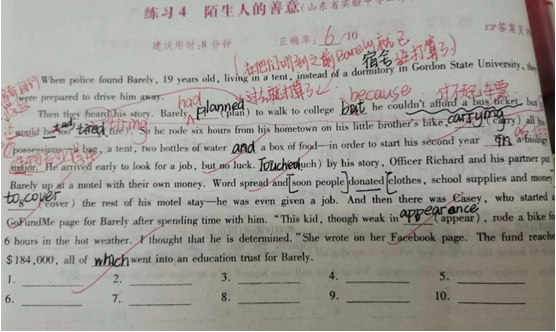 练习4 陌生人的善意(山东省实验中学
建议用时:8分钟 正确率: 6/10 答案见
(在他们听到之前Barely就已
宿舍
When police found Barely, 19 years old, living in a tent, instead of a dormitory in Gordon State University, they
were prepared to drive him away.
had planned because 付不起车票
Then they heard his story. Barely (plan) to walk to college but he couldn't afford a bus ticket, but
would tired tiring So he rode six hours from his hometown on his little brother's bike, carrying (carry) all his
possessions—a bag, a tent, two bottles of water and a box of food—in order to start his second year in a biology
major. He arrived early to look for a job, but no luck. Touched (touch) by his story, Officer Richard and his partner put
Barely up at a motel with their own money. Word spread and soon people donated clothes, school supplies and money
to cover (cover) the rest of his motel stay—he was even given a job. And then there was Casey, who started a
GoFundMe page for Barely after spending time with him. "This kid, though weak in appearance (appear), rode a bike for
6 hours in the hot weather. I thought that he is determined." She wrote on her Facebook page. The fund reached
$184,000, all of which went into an education trust for Barely.
1. 2. 3. 4. 5.
6. 7. 8. 9. 10.